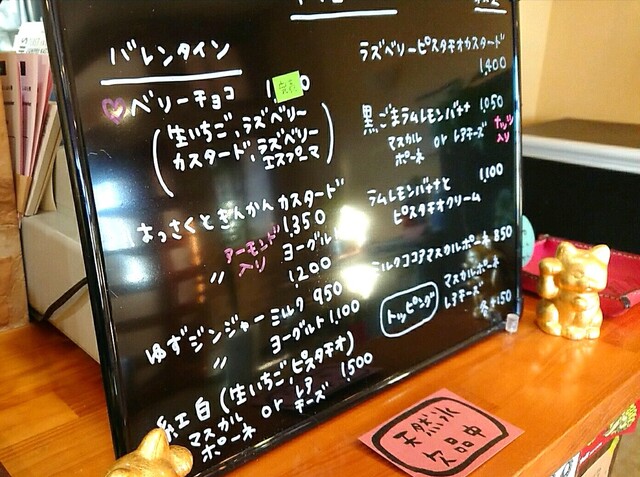 バレンタイン
ベリーチョコ
完売
(生いちご、ラズベリー
カスタード、ラズベリー
エスプーマ)
はっさくときんかんカスタード
1,350
アーモンド
入り
〃 ヨーグルト
1,200
ゆずジンジャーミルク 950
〃 ヨーグルト 1,100
紅白(生いちご、ピスタチオ)
マスカル
ポーネ or レア
チーズ 1,500
ラズベリーピスタチオカスタード
1,400
黒ごまラムレモンバナナ 1050
マスカル
ポーネ or レアチーズ
ナッツ
入り
1,100
ラムレモンバナナと
ピスタチオクリーム
ミルクココアマスカルポーネ 850
トッピング
マスカルポーネ
レアチーズ
各+150
天然氷
欠品中